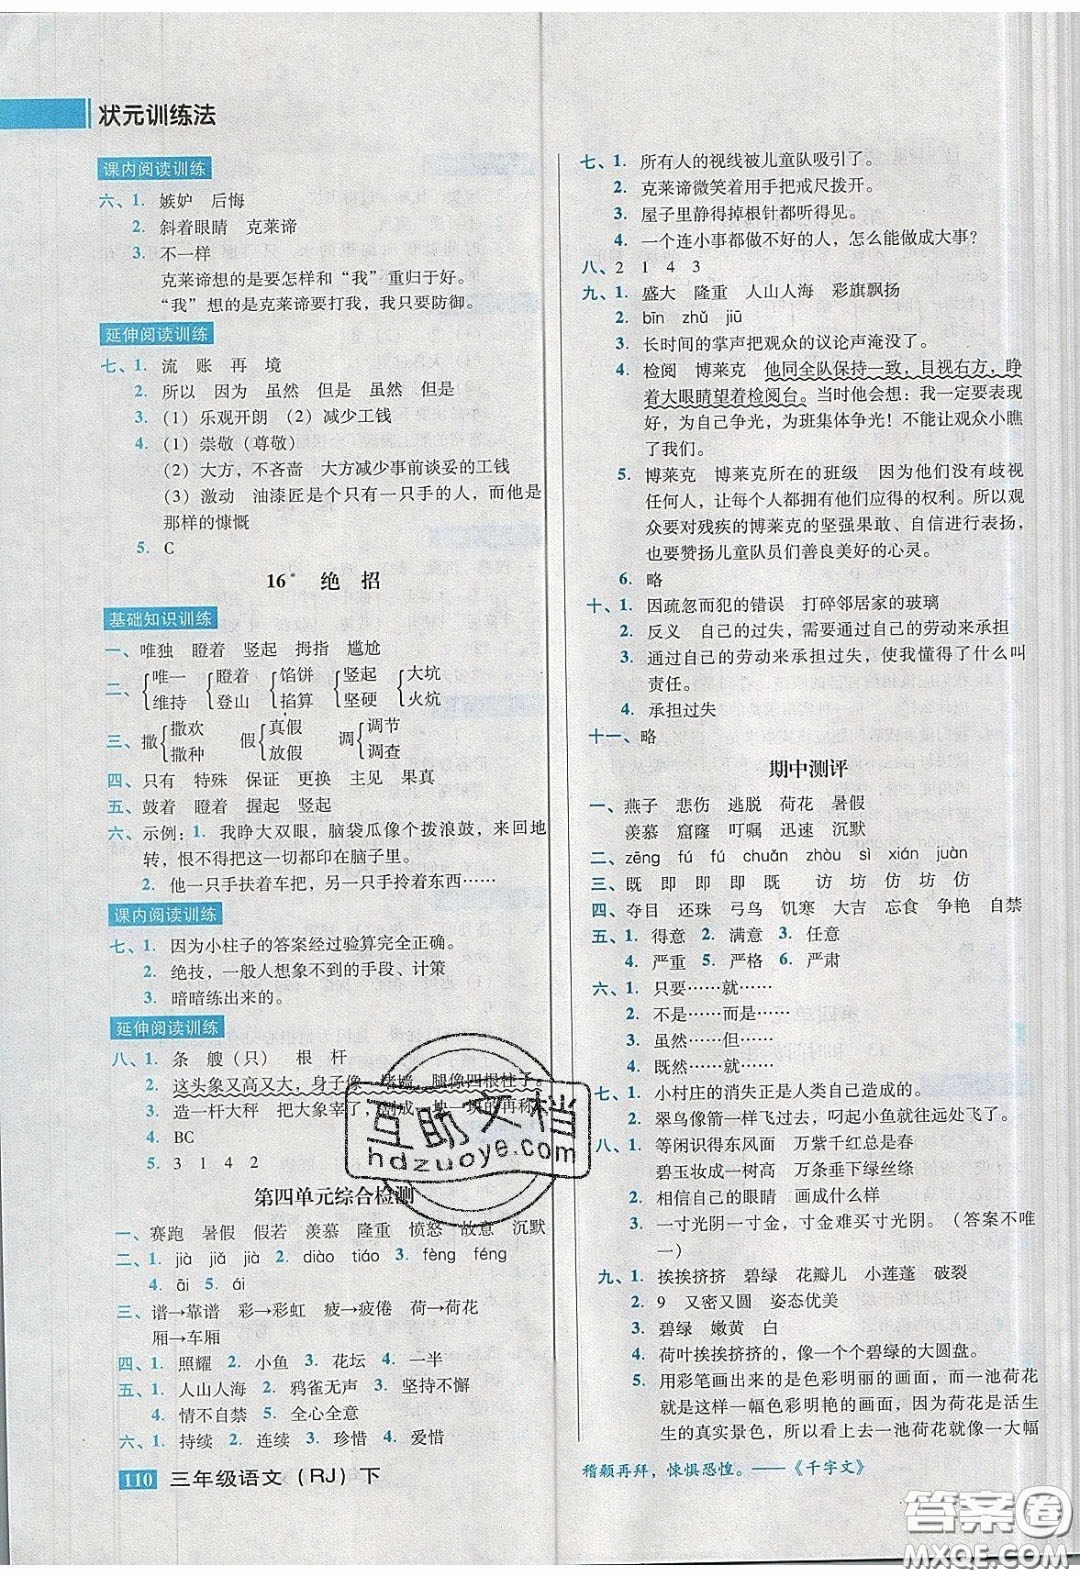 状元训练法
课内阅读训练
六、1. 嫉妒 后悔
2. 斜着眼睛 克莱谛
3. 不一样
克莱谛想的是要怎样和“我”重归于好。
“我”想的是克莱谛要打我，我只要防御。
延伸阅读训练
七、1. 流 账 再 境
2. 所以 因为 虽然 但是 虽然 但是
3. (1) 乐观开朗 (2) 减少工钱
4. (1) 崇敬（尊敬）
(2) 大方，不吝啬 大方减少事前谈妥的工钱
(3) 激动 油漆匠是个只有一只手的人，而他是
那样的慷慨
5. C
16* 绝 招
基础知识训练
一、唯独 瞪着 竖起 拇指 尴尬
二、{唯一 维持 {瞪着 登山 {馅饼 掐算 {竖起 坚硬 {大坑 火炕
三、撒{撒欢 撒种 假{真假 放假 调{调节 调查
四、只有 特殊 保证 更换 主见 果真
五、鼓着 瞪着 握起 竖起
六、示例：1. 我睁大双眼，脑袋瓜像个拨浪鼓，来回地
转，恨不得把这一切都印在脑子里。
2. 他一只手扶着车把，另一只手拎着东西……
课内阅读训练
七、1. 因为小柱子的答案经过验算完全正确。
2. 绝技，一般人想象不到的手段、计策
3. 暗暗练出来的。
延伸阅读训练
八、1. 条 艘（只） 根 杆
2. 这头象又高又大，身子像 堵墙，腿像四根柱子。
3. 造一杆大秤 把大象宰了，割成一块一块的再称。
4. BC
5. 3 1 4 2
第四单元综合检测
一、赛跑 暑假 假若 羡慕 隆重 愤怒 故意 沉默
二、1. jià jiǎ jià 2. dào tiáo 3. fèng féng
4. āi 5. ái
三、谱→靠谱 彩→彩虹 疲→疲倦 荷→荷花
厢→车厢
四、1. 照耀 2. 小鱼 3. 花坛 4. 一半
五、1. 人山人海 2. 鸦雀无声 3. 坚持不懈
4. 情不自禁 5. 全心全意
六、1. 持续 2. 连续 3. 珍惜 4. 爱惜
110 三年级语文（RJ）下
七、1. 所有人的视线被儿童队吸引了。
2. 克莱谛微笑着用手把戒尺拨开。
3. 屋子里静得掉根针都听得见。
4. 一个连小事都做不好的人，怎么能做成大事？
八、2 1 4 3
九、1. 盛大 隆重 人山人海 彩旗飘扬
2. bīn zhǔ jiū
3. 长时间的掌声把观众的议论声淹没了。
4. 检阅 博莱克 他同全队保持一致，目视右方，睁
着大眼睛望着检阅台。当时他会想：我一定要表现
好，为自己争光，为班集体争光！不能让观众小瞧
了我们。
5. 博莱克 博莱克所在的班级 因为他们没有歧视
任何人，让每个人都拥有他们应得的权利。所以观
众要对残疾的博莱克的坚强果敢、自信进行表扬，
也要赞扬儿童队员们善良美好的心灵。
6. 略
十、1. 因疏忽而犯的错误 打碎邻居家的玻璃
2. 反义 自己的过失，需要通过自己的劳动来承担
3. 通过自己的劳动来承担过失，使我懂得了什么叫
责任。
4. 承担过失
十一、略
期中测评
一、燕子 悲伤 逃脱 荷花 暑假
羡慕 窟窿 叮嘱 迅速 沉默
二、zēng fú fú chuǎn zhòu sì xián juàn
三、既 即 即 既 访 坊 仿 仿
四、夺目 还珠 弓鸟 饥寒 大吉 忘食 争艳 自禁
五、1. 得意 2. 满意 3. 任意
4. 严重 5. 严格 6. 严肃
六、1. 只要……就……
2. 不是……而是……
3. 虽然……但……
4. 既然……就……
七、1. 小村庄的消失正是人类自己造成的。
2. 翠鸟像箭一样飞过去，叼起小鱼就往远处飞了。
八、1. 等闲识得东风面 万紫千红总是春
碧玉妆成一树高 万条垂下绿丝绦
2. 相信自己的眼睛 画成什么样
3. 一寸光阴一寸金，寸金难买寸光阴。（答案不唯
一）
九、1. 挨挨挤挤 碧绿 花瓣儿 小莲蓬 破裂
2. 9 又密又圆 姿态优美
3. 碧绿 嫩黄 白
4. 荷叶挨挨挤挤的，像一个个碧绿的大圆盘。
5. 用彩笔画出来的是色彩明丽的画面，而一池荷花
就是这样一幅色彩明艳的画面，因为荷花是活生
生的真实景色，所以看上去一池荷花就像一大幅
稽颡再拜，悚惧恐惶。——《千字文》
互助文档
hdzuoye.com
答案圈
MXQE.COM